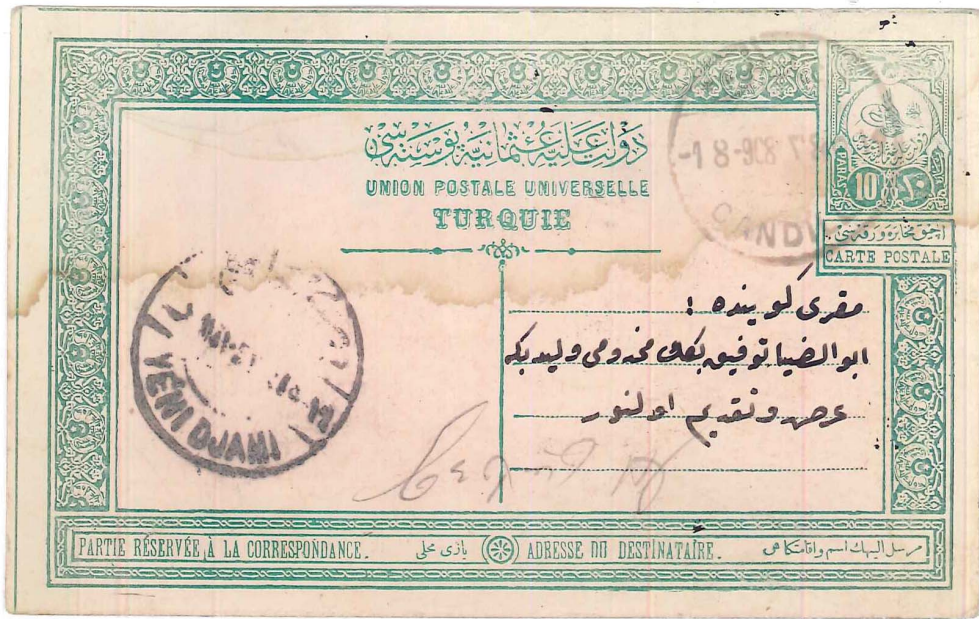 دولت علیه عثمانیه پوسته سی
UNION POSTALE UNIVERSELLE
TURQUIE
PARA 10
آچیق مخابره ورقه سی
CARTE POSTALE
-1 8-908
CANDI
YÉNI DJAMI
مقری کوینده :
ابوالضیا توفیق بك مخدومی ولید بكه
عرض و تقدیم اولنور
PARTIE RÉSERVÉE À LA CORRESPONDANCE. یازی محلی ADRESSE DU DESTINATAIRE. مرسل الیهك اسم واقامتكاهی